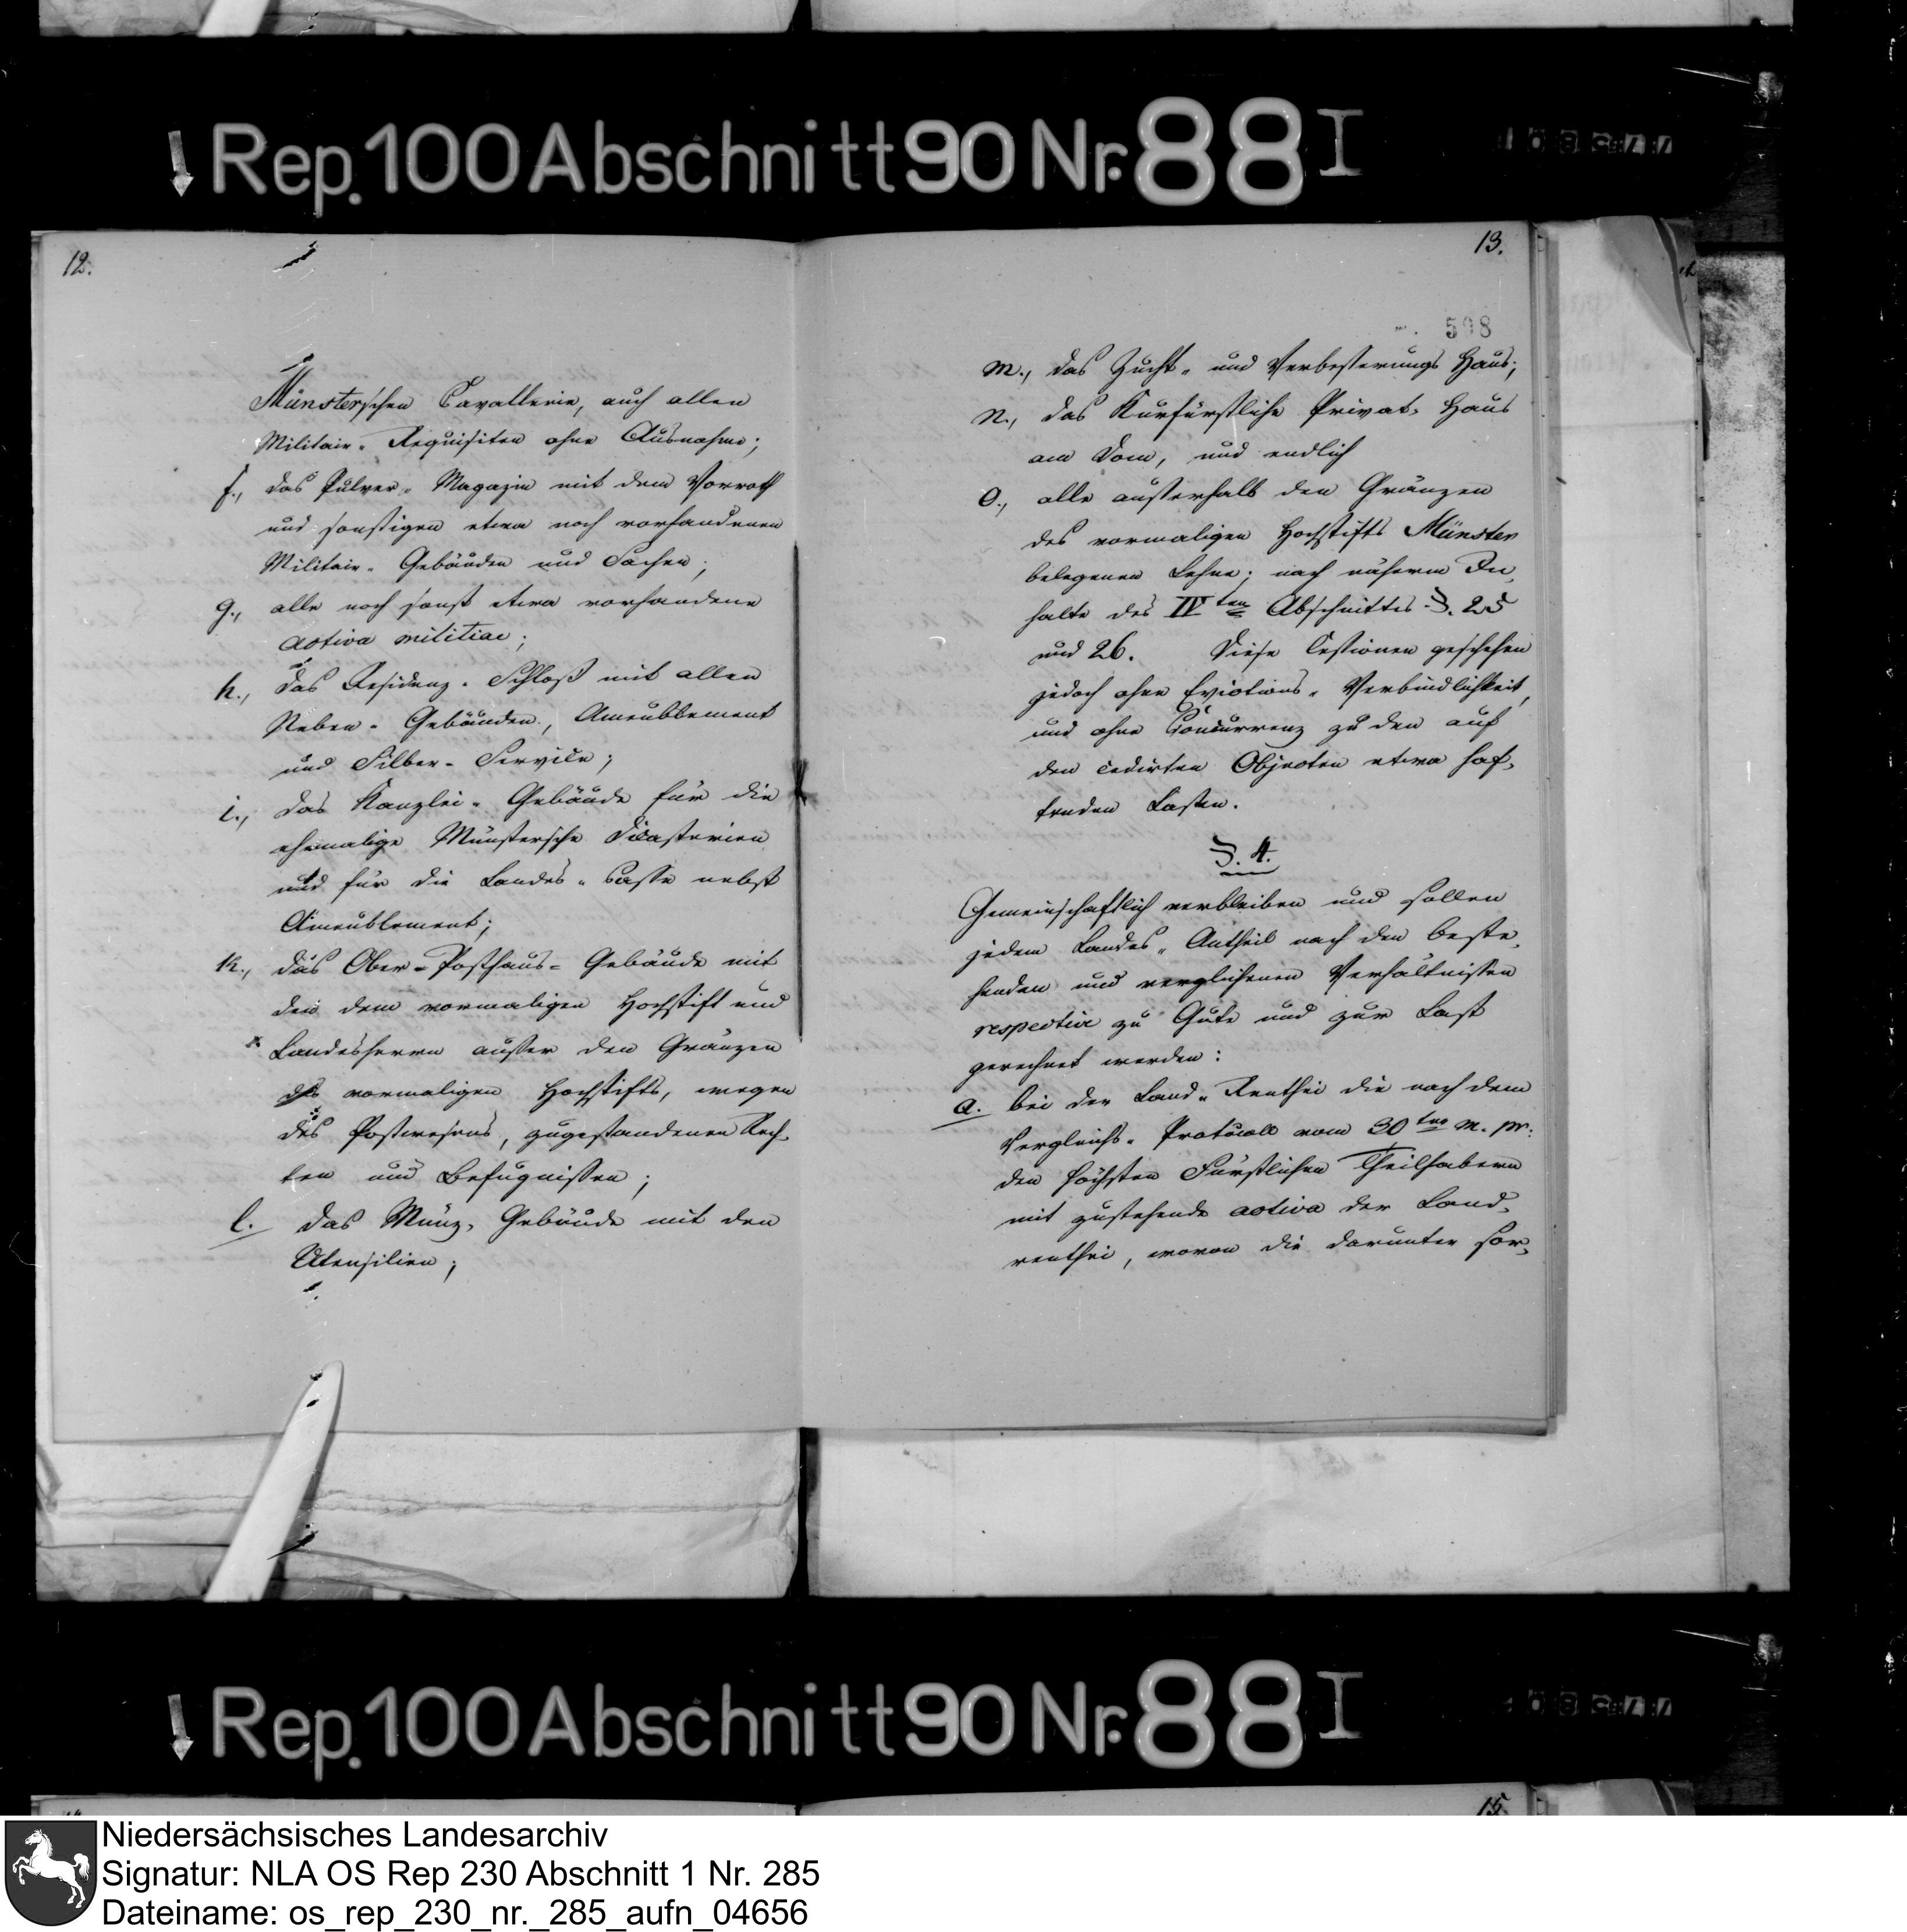 Rep. 100 Abschnitt 90 Nr. 88 I
12.
Münster'schen Cavallerie, auch allen
Militair-Requisiten ohne Ausnahme;
f., das Pulver-Magazin mit dem Vorrath
und sonstigen etwa noch vorhandenen
Militair-Gebäuden und Sachen;
g., alle noch sonst etwa vorhandene
activa militiae;
h., das Residenz-Schloß mit allen
Neben-Gebäuden, Ameublement
und Silber-Service;
i., das Kanzlei-Gebäude für die
ehemalige Münstersche Dicasterien
und für die Landes-Casse nebst
Ameublement;
k., das Ober-Posthaus-Gebäude mit
den dem vormaligen Hochstift und
Landesherrn ausser den Gränzen
des vormaligen Hochstifts, wegen
des Postwesens, zugestandenen Rech-
ten und Befugnissen;
l. das Münz-Gebäude mit den
Utensilien;
13.
508
m., das Zucht- und Verbesserungs Haus;
n., das Kurfürstliche Privat-Haus
am Dom, und endlich
o., alle ausserhalb den Gränzen
des vormaligen Hochstifts Münster
belegenen Lehne; nach näherm In-
halte des IVten Abschnittes §. 25
und 26. Diese Cessionen geschehen
jedoch ohne Evictions-Verbindlichkeit,
und ohne Concurrenz zu den auf
den cedirten Objecten etwa haf-
tenden Lasten.
§. 4.
Gemeinschaftlich verbleiben und sollen
jedem Landes-Antheil nach den beste-
henden und verglichenen Verhältnissen
respective zu Gute und zur Last
gerechnet werden:
a. bei der Land-Renthei die nach dem
Vergleichs-Protocoll vom 30ten m. pr.
den höchsten Fürstlichen Theilhabern
mit zustehende activa der Land-
renthei, wovon die darunter sor-
Rep. 100 Abschnitt 90 Nr. 88 I
15.
Niedersächsisches Landesarchiv
Signatur: NLA OS Rep 230 Abschnitt 1 Nr. 285
Dateiname: os_rep_230_nr._285_aufn_04656